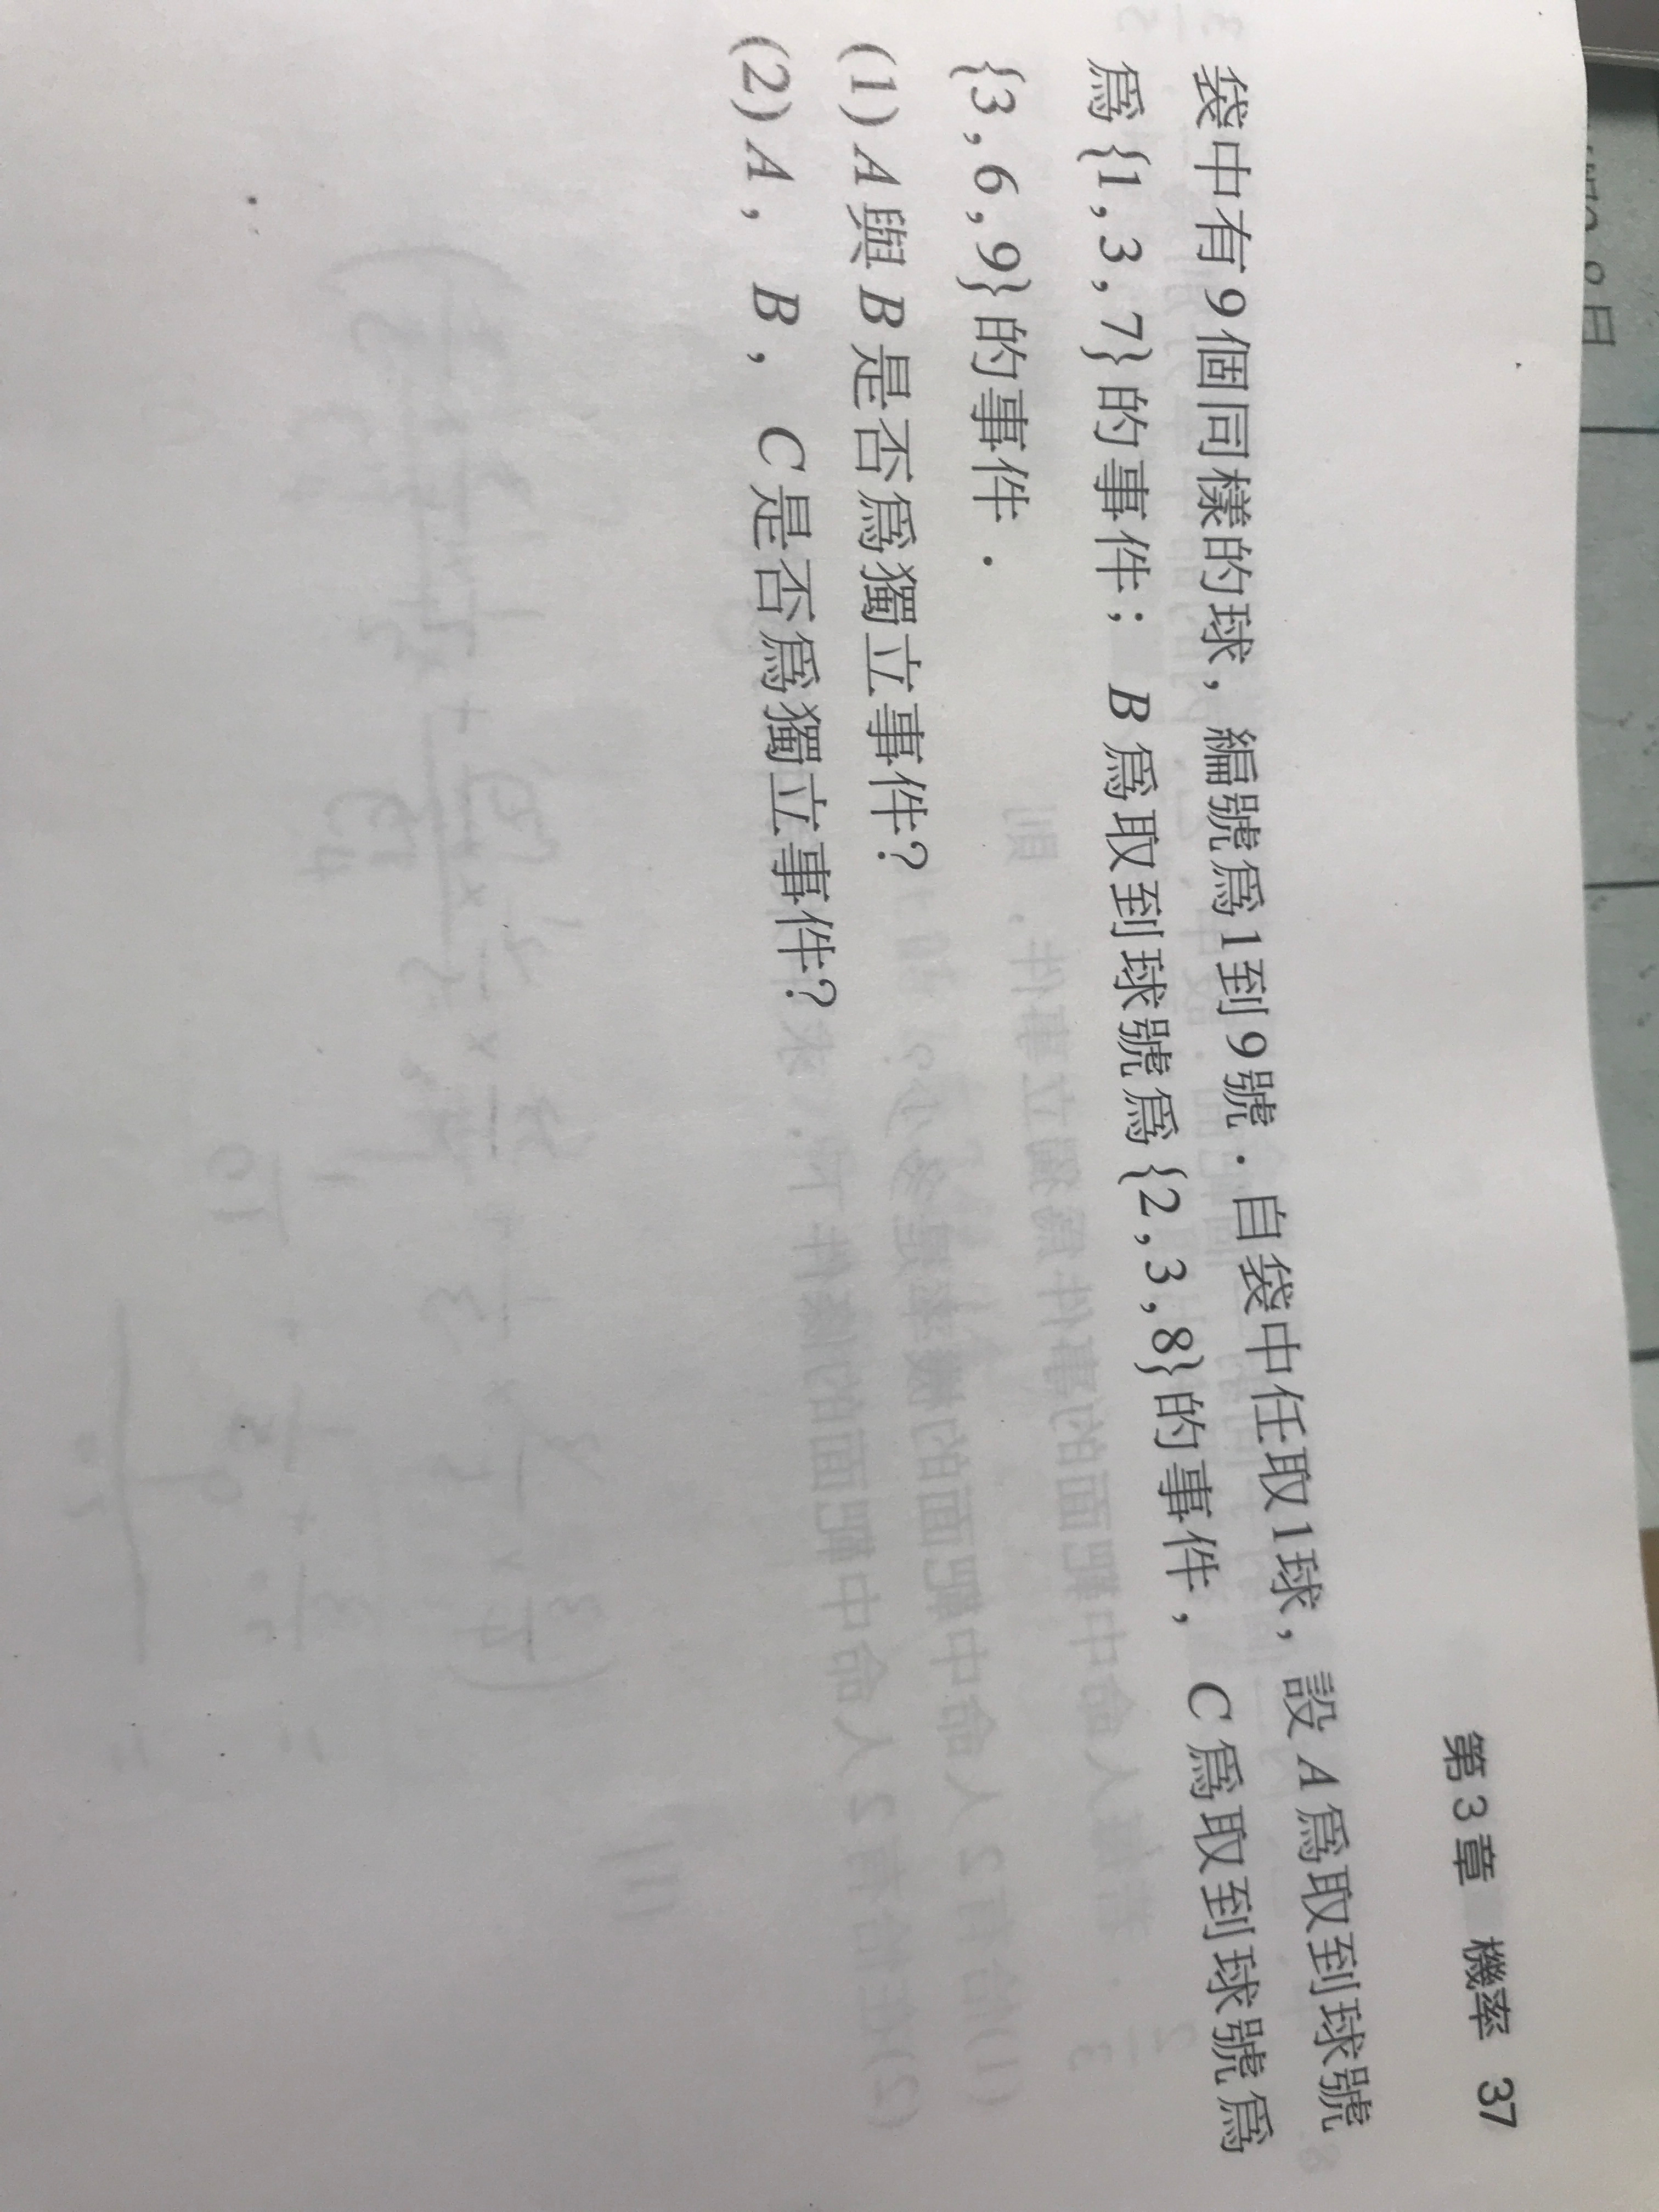 第3章 機率 37
袋中有9個同樣的球，編號爲1到9號．自袋中任取1球，設A爲取到球號
爲{1,3,7}的事件；B爲取到球號爲{2,3,8}的事件，C爲取到球號爲
{3,6,9}的事件．
(1)A與B是否爲獨立事件？
(2)A，B，C是否爲獨立事件？